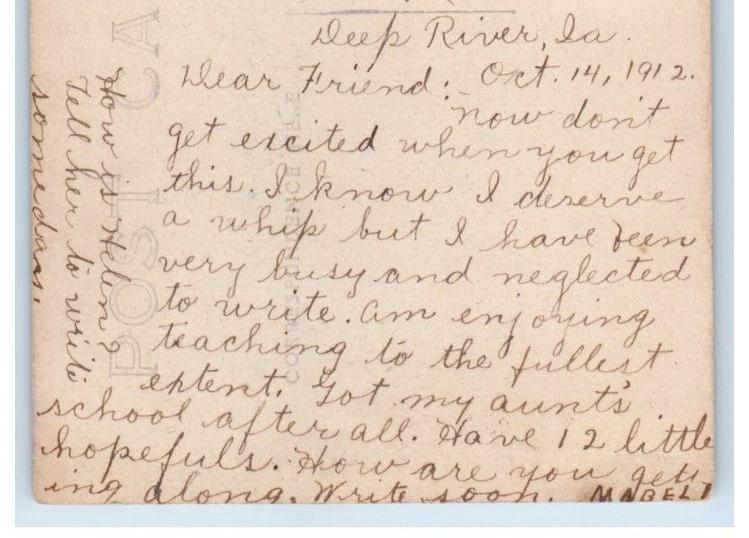 Deep River, Ia.
Dear Friend: Oct. 14, 1912.
now don't
get excited when you get
this. I know I deserve
a whip but I have been
very busy and neglected
to write. Am enjoying
teaching to the fullest
extent. Got my aunt's
school after all. Have 12 little
hopefuls. How are you gett
ing along. Write soon. MABEL
How is Helen?
Tell her to write
someday.
POST CA
CORRESPONDENCE